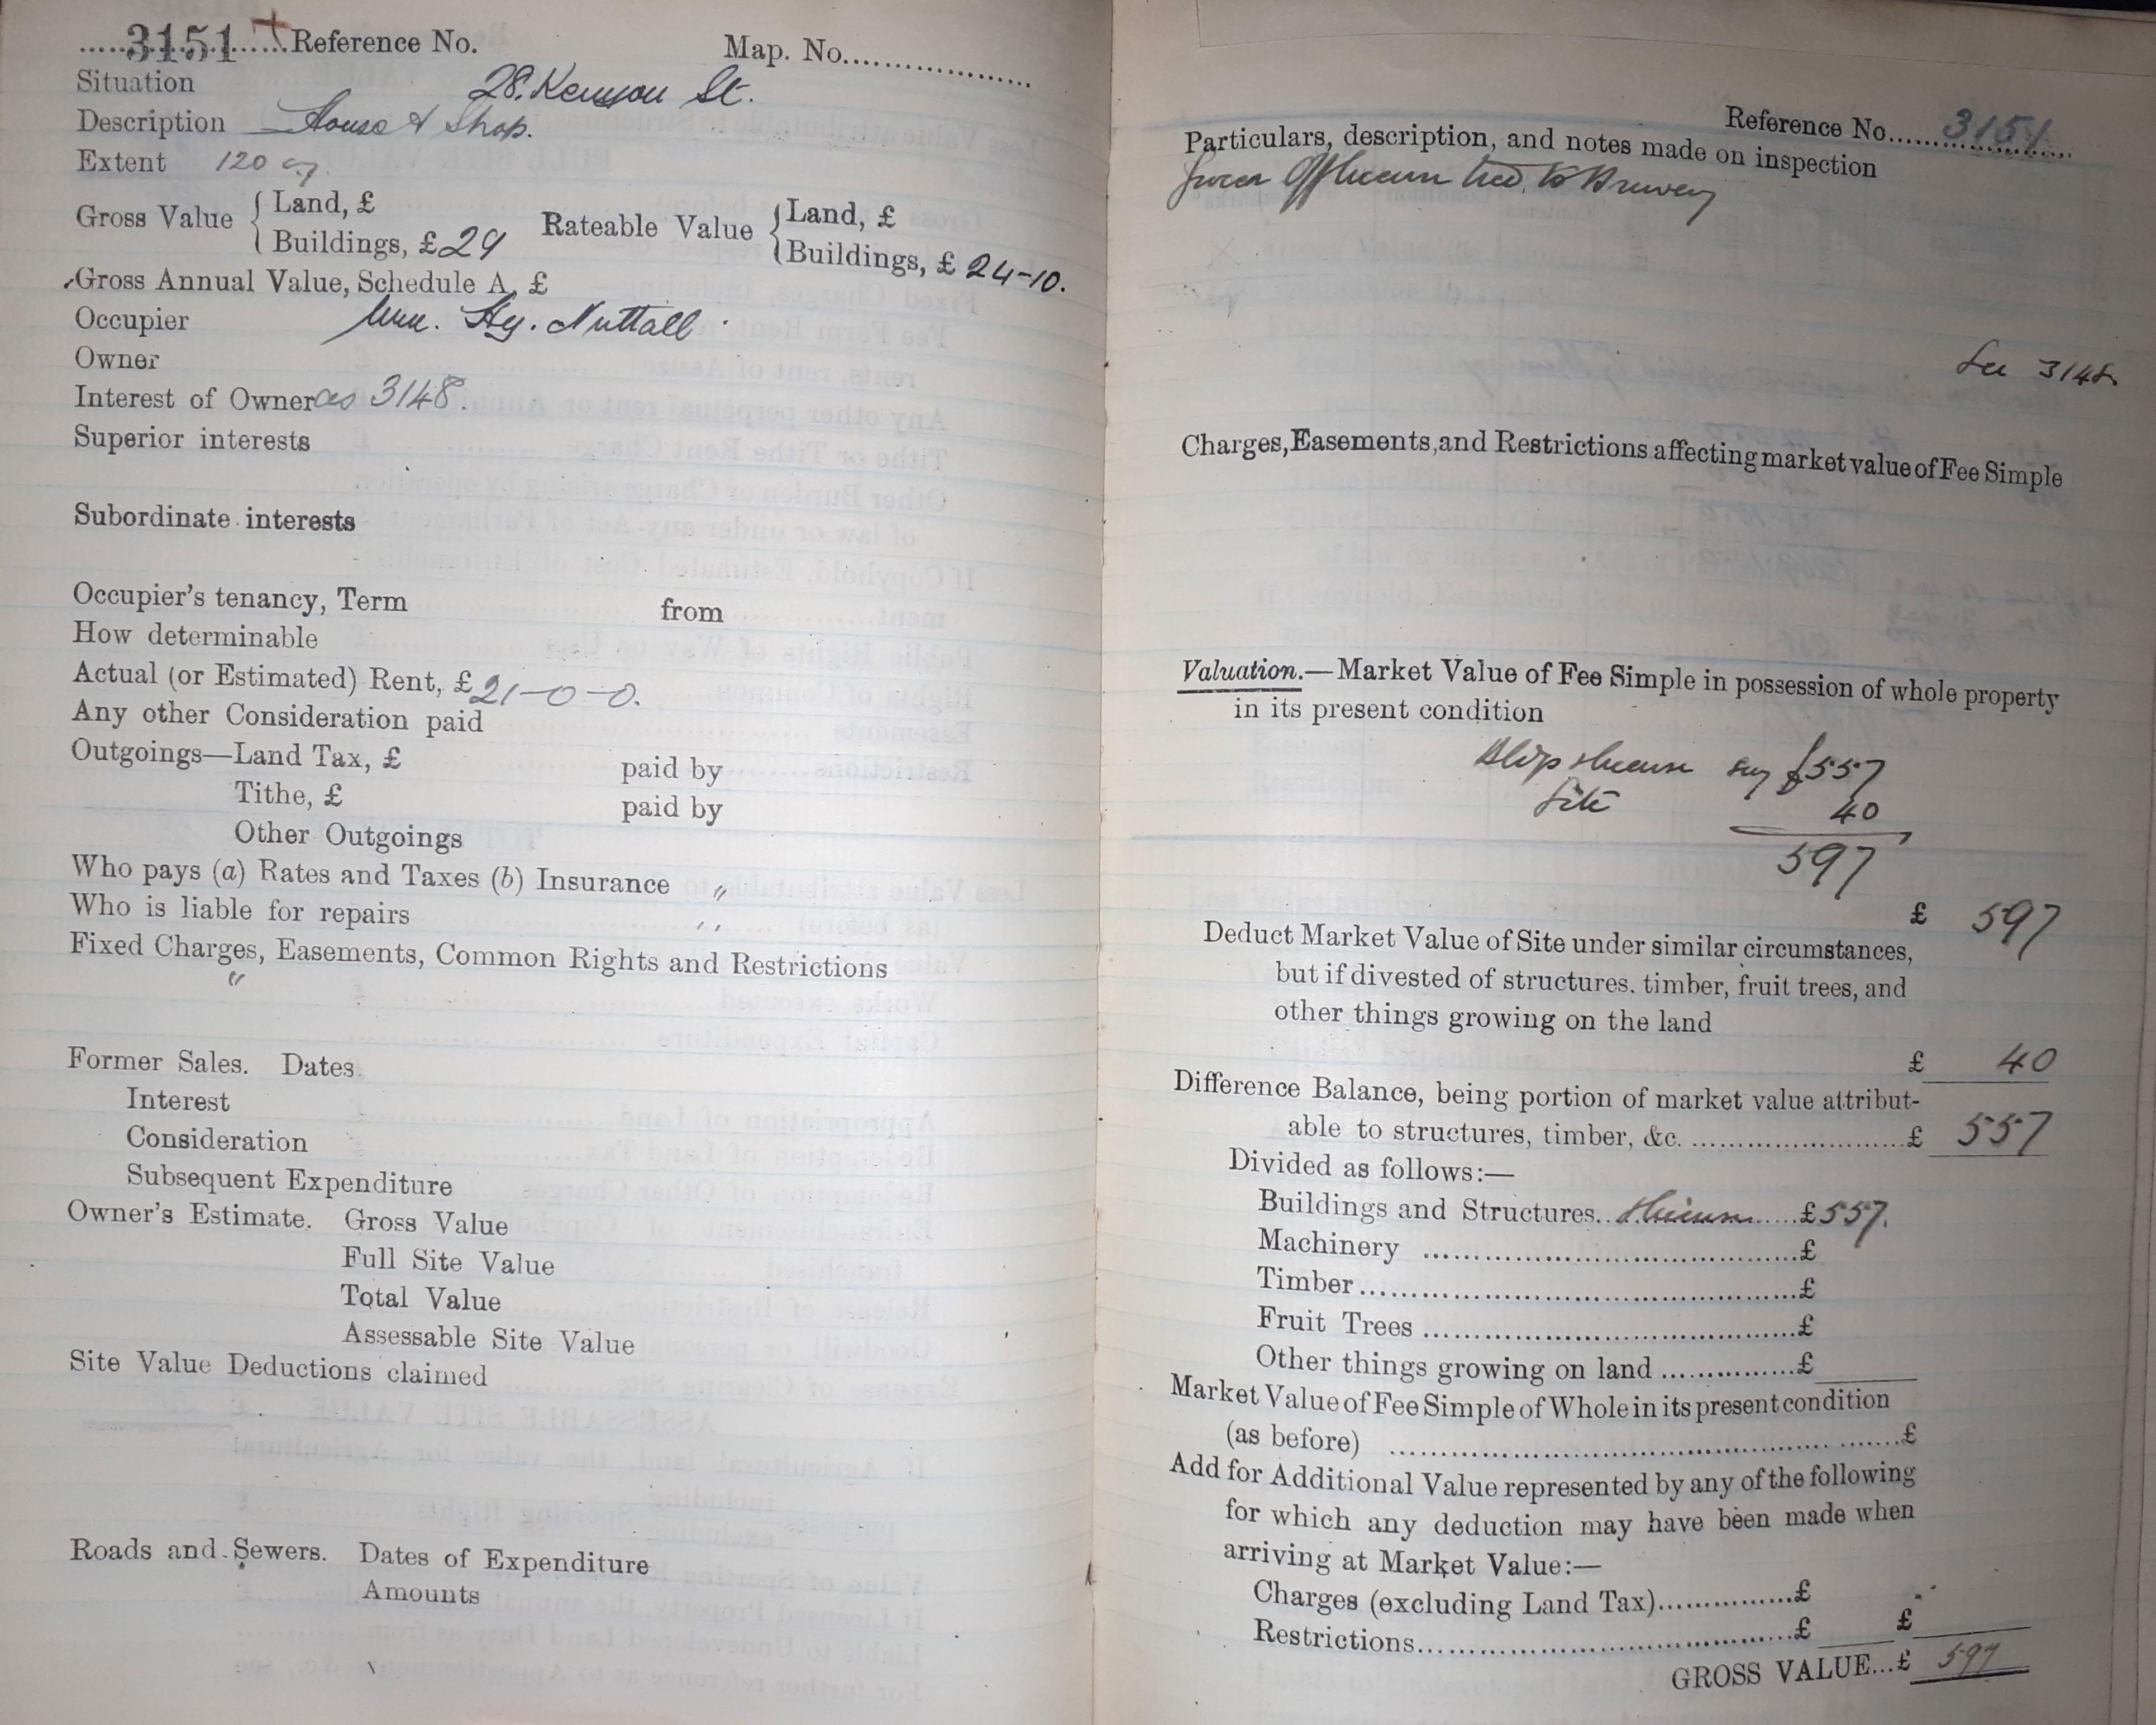 3151 Reference No. Map. No.
Situation 28. Kenyon St.
Description House & Shop.
Extent 120
Gross Value { Land, £ Rateable Value { Land, £
Buildings, £29 Buildings, £ 24-10.
Gross Annual Value, Schedule A, £
Occupier Wm. Hy. Nuttall.
Owner
Interest of Owner as 3148.
Superior interests
Subordinate interests
Occupier's tenancy, Term from
How determinable
Actual (or Estimated) Rent, £ 21-0-0.
Any other Consideration paid
Outgoings—Land Tax, £ paid by
Tithe, £ paid by
Other Outgoings
Who pays (a) Rates and Taxes (b) Insurance "
Who is liable for repairs "
Fixed Charges, Easements, Common Rights and Restrictions
"
Former Sales. Dates
Interest
Consideration
Subsequent Expenditure
Owner's Estimate. Gross Value
Full Site Value
Total Value
Assessable Site Value
Site Value Deductions claimed
Roads and Sewers. Dates of Expenditure
Amounts
Reference No. 3151
Particulars, description, and notes made on inspection
Off license tied to Brewery
See 3148
Charges, Easements, and Restrictions affecting market value of Fee Simple
Valuation.—Market Value of Fee Simple in possession of whole property
in its present condition
say £557
Site 40
597
£ 597
Deduct Market Value of Site under similar circumstances,
but if divested of structures. timber, fruit trees, and
other things growing on the land
£ 40
Difference Balance, being portion of market value attribut-
able to structures, timber, &c. £ 557
Divided as follows:—
Buildings and Structures £557.
Machinery £
Timber £
Fruit Trees £
Other things growing on land £
Market Value of Fee Simple of Whole in its present condition
(as before) £
Add for Additional Value represented by any of the following
for which any deduction may have been made when
arriving at Market Value:—
Charges (excluding Land Tax) £
Restrictions £ £
GROSS VALUE...£ 597